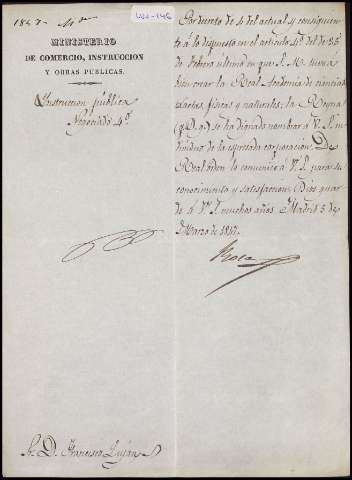 1847
MINISTERIO
DE COMERCIO, INSTRUCCION
Y OBRAS PUBLICAS.
Instruccion publica
Negociado 4º
Por decreto de 4 del actual y consiguien
te á lo dispuesto en el artículo 4º del de 25
de febrero ultimo en que S. M. tuvo á
bien crear la Real Academia de ciencias
exactas, fisicas y naturales; la Reyna
(q. D. g.) se ha dignado nombrar á V. S. in
dividuo de la espresada corporacion. De
Real orden lo comunico á V. S. para su
conocimiento y satisfaccion. Dios guar
de á V. S. muchos años. Madrid 5 de
Marzo de 1847.
Roca
Sr. D. Francisco Luján